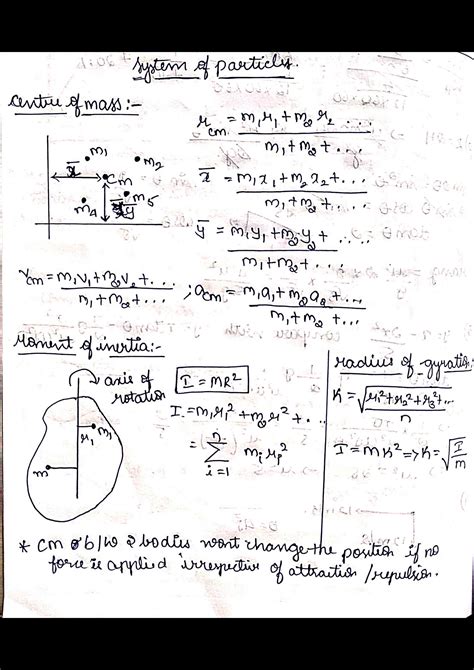 System of particles.
Centre of mass:-
r_cm = m₁r₁ + m₂r₂ ... / m₁ + m₂ + ...
m₁
m₂
x̄
cm
m₅
m₄
ȳ
x̄ = m₁x₁ + m₂x₂ + ... / m₁ + m₂ + ...
ȳ = m₁y₁ + m₂y₂ + ..... / m₁ + m₂ + ...
v_cm = m₁v₁ + m₂v₂ + ... / m₁ + m₂ + ... ; a_cm = m₁a₁ + m₂a₂ + ... / m₁ + m₂ + ...
Moment of inertia:-
axis of
rotation
r₁
m₁
m
I = MR²
I = m₁r₁² + m₂r² + ...
= n Σ i=1 mᵢrᵢ²
radius of gyration:
K = √r₁² + r₂² + r₃² + ... / n
I = MK² => K = √I/m
* cm of b/w 2 bodies wont change the position if no
force is applied irrespective of attraction / repulsion.